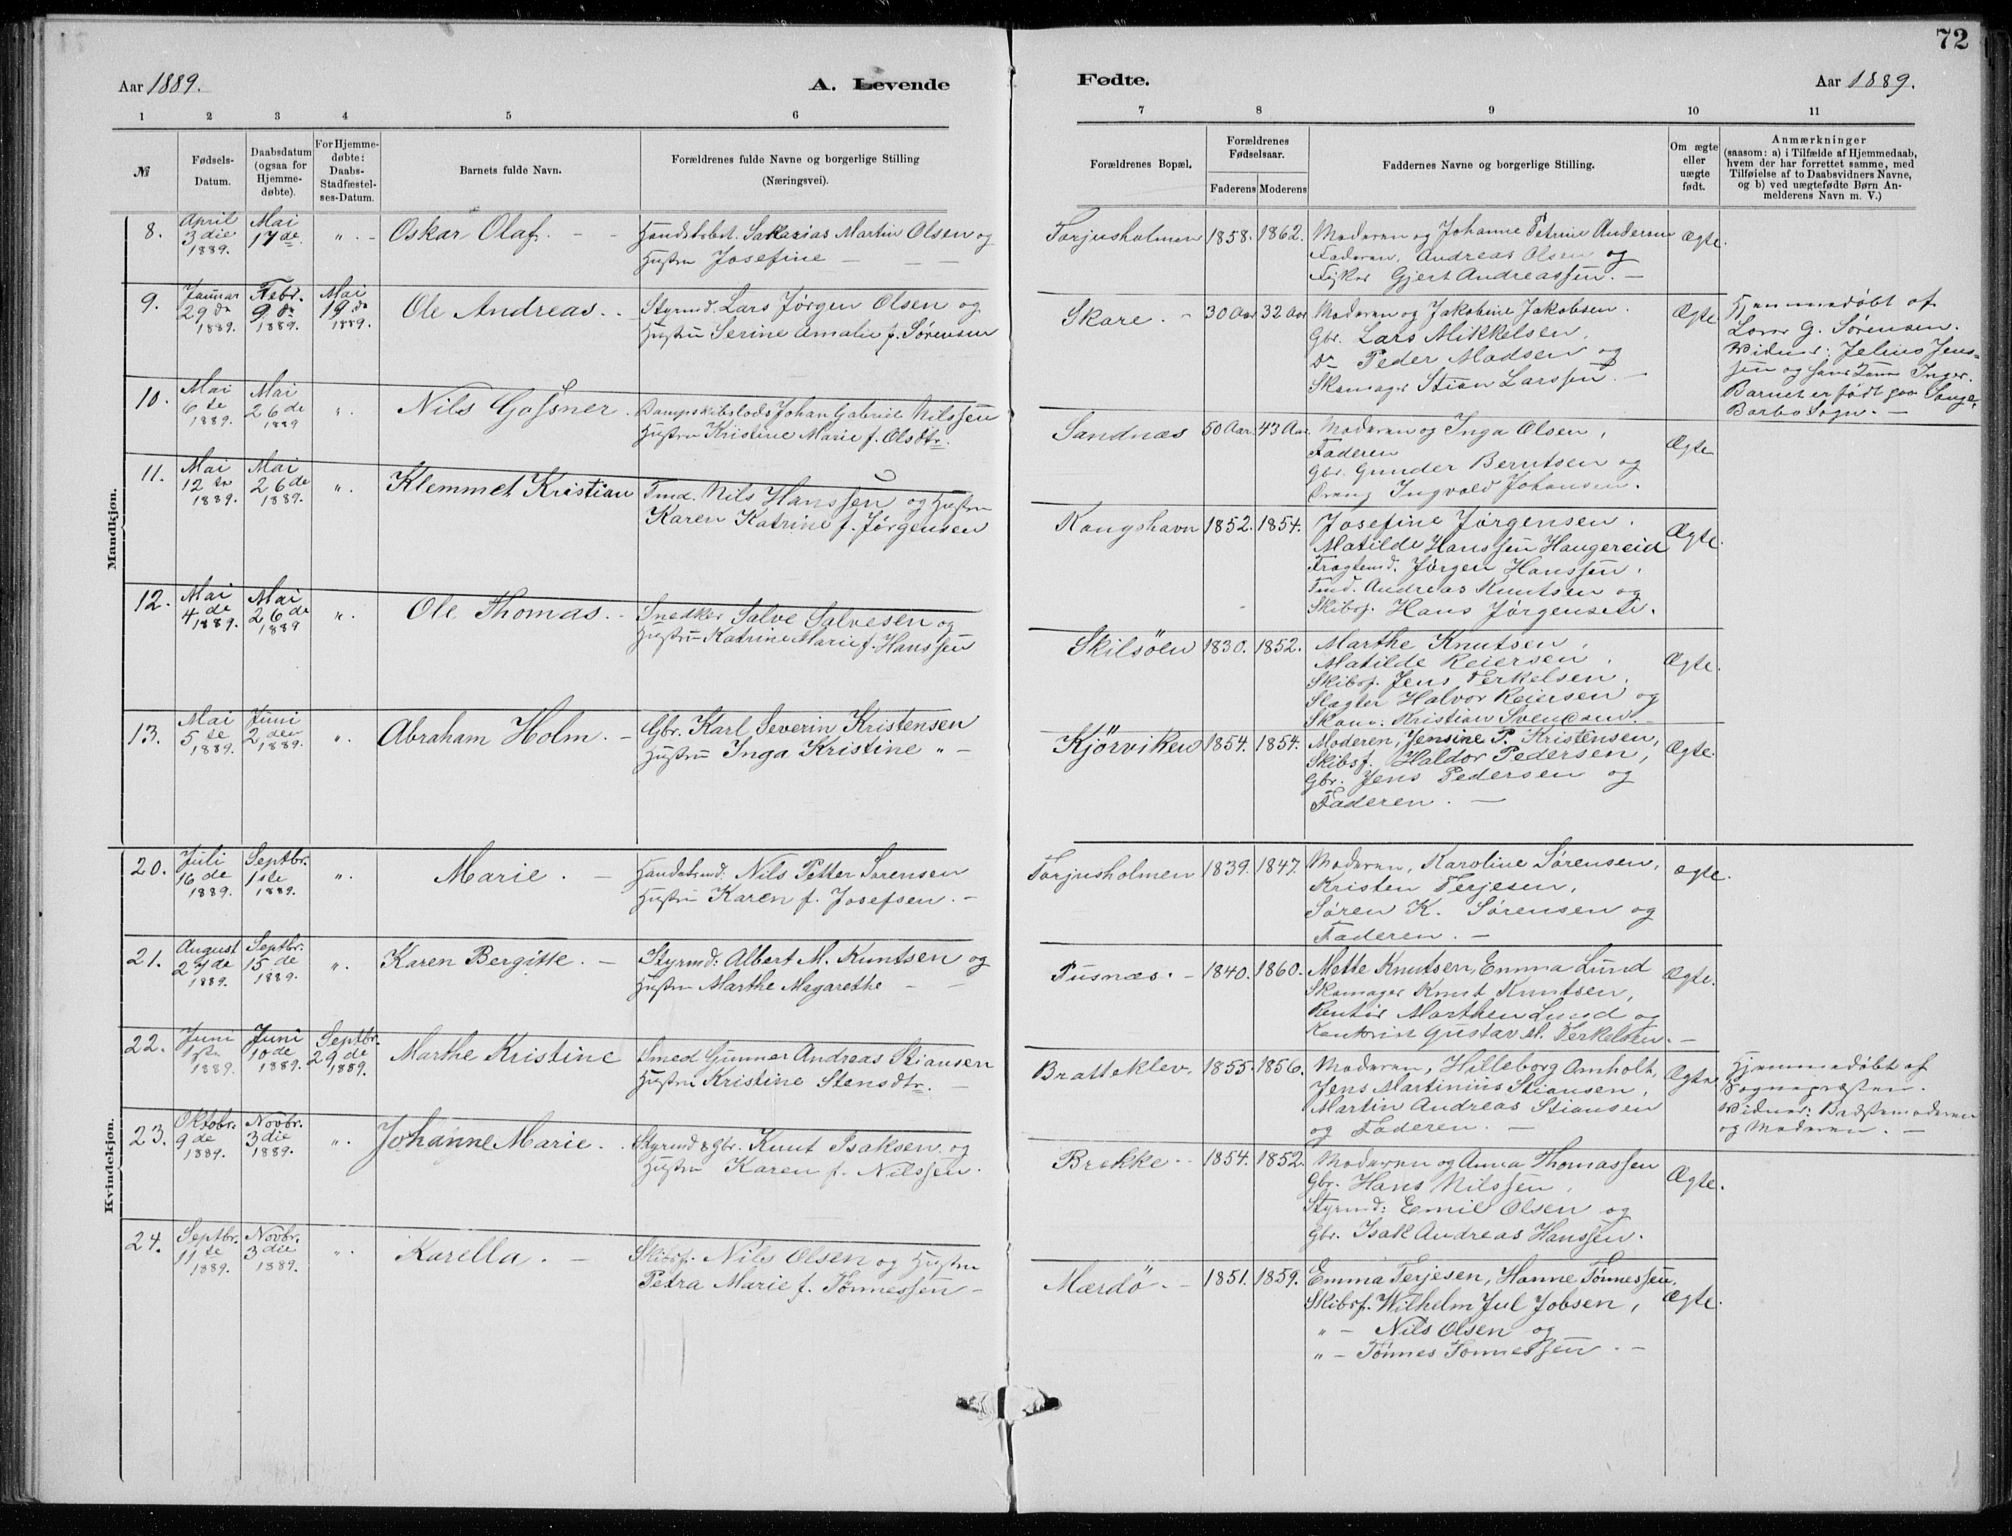 72
Aar 1889.
A. Levende
Fødte.
Aar 1889.
1 2 3 4 5 6 7 8 9 10 11
№
Fødsels-
Datum.
Daabsdatum
(ogsaa for
Hjemme-
døbte).
For Hjemme-
døbte:
Daabs-
Stadfæstel-
ses-Datum.
Barnets fulde Navn.
Forældrenes fulde Navne og borgerlige Stilling
(Næringsvei).
Forældrenes Bopæl.
Forældrenes
Fødselsaar.
Faderens Moderens
Faddernes Navne og borgerlige Stilling.
Om ægte
eller
uægte
født.
Anmærkninger
(saasom: a) i Tilfælde af Hjemmedaab,
hvem der har forrettet samme, med
Tilføielse af to Daabsvidners Navne,
og b) ved uægtefødte Børn An-
melderens Navn m. V.)
Mandkjøn.
8.
April
3die
1889.
Mai
17de
".
Oskar Olaf.
Sakarias Martin Olsen og
Hustru Josefine
Torjusholmen
1858. 1862.
Moderen og Johanne Petrine Andersen
Faderen, Andreas Olsen og
Fisker Gjert Andreassen.
Ægte.
9.
Januar
29de
1889.
Febr.
9de
1889.
Mai
19de
1889.
Ole Andreas.
Styrmd. Lars Jørgen Olsen og
Hustru Serine Amalie f. Sørensen
Skare.
30 Aar 32 Aar
Moderen og Jakobine Jakobsen.
Gbr. Lars Mikkelsen,
Do Peder Madsen og
Skomager Stian Larssen.
Ægte
Hjemmedøbt af
G. Sørensen.
Vidner: Jelius Jens-
sen og Inger.
Barnet er født paa Songe,
Barbo Sogn.
10.
Mai
6te
1889.
Mai
26de
1889
".
Nils Gossner.
Dampskibslods Johan Gabriel Nilssen
Hustru Kristine Marie f. Olsdtr.
Sandnæs
50 Aar. 43 Aar.
Moderen og Inga Olsen,
Faderen
Gbr. Gunder Berntsen og
Dreng Ingvald Johansen.
Ægte
11.
Mai
12te
1889.
Mai
26de
1889.
".
Klemmet Kristian
Tmd. Nils Hanssen og Hustru
Karen Katrine f. Jørgensen
Kongshavn
1852. 1854.
Josefine Jørgensen.
Matilde Hanssen Haugereid
Fragtemd. Jørgen Hanssen.
Tmd. Andreas Knutsen og
Skibsf. Hans Jørgensen.
Ægte.
12.
Mai
4de
1889.
Mai
26de
1889
".
Ole Thomas.
Snedker Salve Salvesen og
Hustru Katrine Marie f. Hanssen
Skilsöen
1830. 1852.
Marthe Knutsen,
Matilde Reiersen,
Skibsf. Jens Terkelsen.
Slagter Halvor Reiersen og
Skom: Kristian Svendsen.
Ægte.
13.
Mai
5te
1889.
Juni
2den
1889.
".
Abraham Holm.
Gbr. Karl Severin Kristensen
Hustru Inga Kristine "
Kjörviken
1854. 1854.
Moderen, Jensine P. Kristensen,
Skibsf. Haldor Pedersen,
Gbr. Jens Pedersen og
Faderen.
Ægte.
Kvindekjøn.
20.
Juli
16de
1889.
Septbr.
1ste
1889.
".
Marie.
Nils Petter Sørensen
Hustru Karen f. Josefsen.
Torjusholmen
1839. 1847.
Moderen, Karoline Sørensen,
Kristen Terjesen,
Søren K. Sørensen og
Faderen.
ægte.
21.
August
27de
1889.
Septbr.
15de
1889.
".
Karen Bergitte.
Styrmd: Albert M. Knutsen og
Hustru Marthe Magarethe
Pusnæs.
1840. 1860.
Mette Knutsen, Emma Lund
Skomager Knud Knutsen,
Rentir Marthen Lund og
Kantorist Gustav M. Terkelsen.
Ægte.
22.
Juni
1ste
1889.
Juni
10de
1889.
Septbr.
29de
1889.
Marthe Kristine
Smed Gunnar Andreas Stiansen
Hustru Kristine Stensdtr.
Bratteklev.
1855. 1856.
Moderen, Hilleborg Arnholt,
Jens Martinius Stiansen,
Martin Andreas Stiansen
og Faderen.
Ægte
Hjemmedøbt af
Sognepræsten.
Vidner: Bedstemoderen
og Moderen.
23.
Oktobr.
9de
1889.
Novbr.
3die
1889.
".
Johanne Marie.
Styrmd & Gbr. Knut Isaksen og
Hustru Karen f. Nilssen.
Brekke.
1854. 1852.
Moderen og Anna Thomassen
Gbr. Hans Nilssen,
Styrmd: Emil Olsen og
Gbr. Isak Andreas Hanssen.
Ægte.
24.
Septbr.
11te
1889.
Novbr.
3die
1889.
".
Karella.
Skibsf. Nils Olsen og Hustru
Petra Marie f. Tønnessen
Mærdö.
1851. 1859.
Emma Terjesen, Hanne Tönnessen,
Skibsf. Wilhelm Jul Jobsen,
" – Nils Olsen og
" – Tönnes Tönnessen.
Ægte.